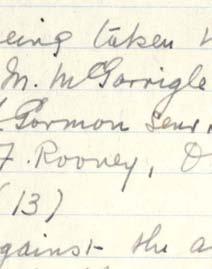 eing taken
M. McGarrigle
Gormon Senr.
F. Rooney, D
(13)
gainst the a